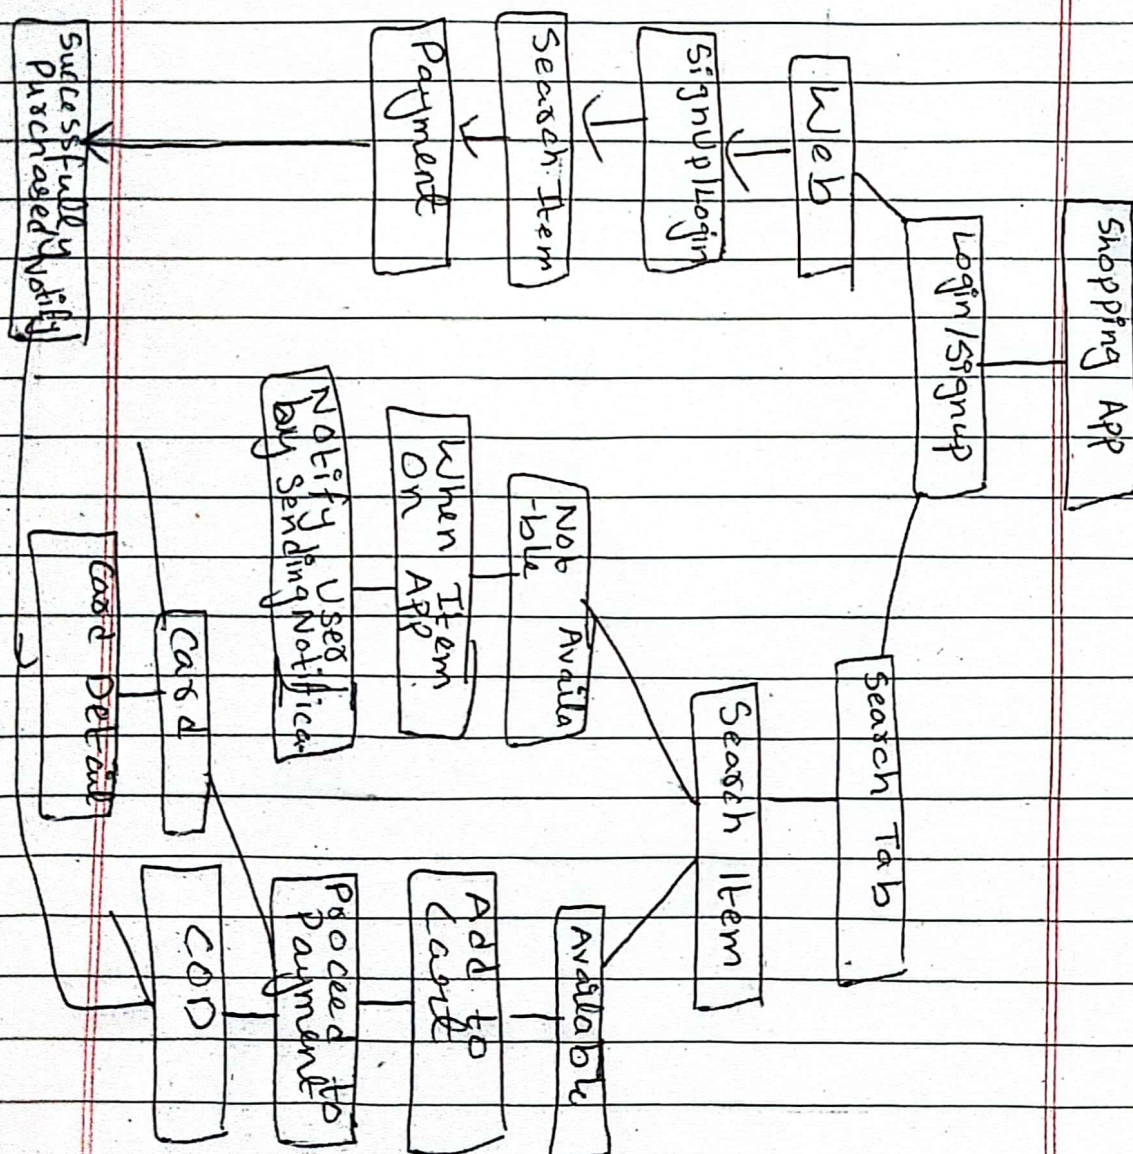 Shopping App
Login/Signup
Web
Signup/Login
Search Item
Payment
Successfully
Purchased Notify
Search Tab
Search Item
Not Availa
-ble
When Item
On App
Notify User
by Sending Notifica
Available
Add to
Cart
Proceed to
Payment
Card
Card Detail
COD